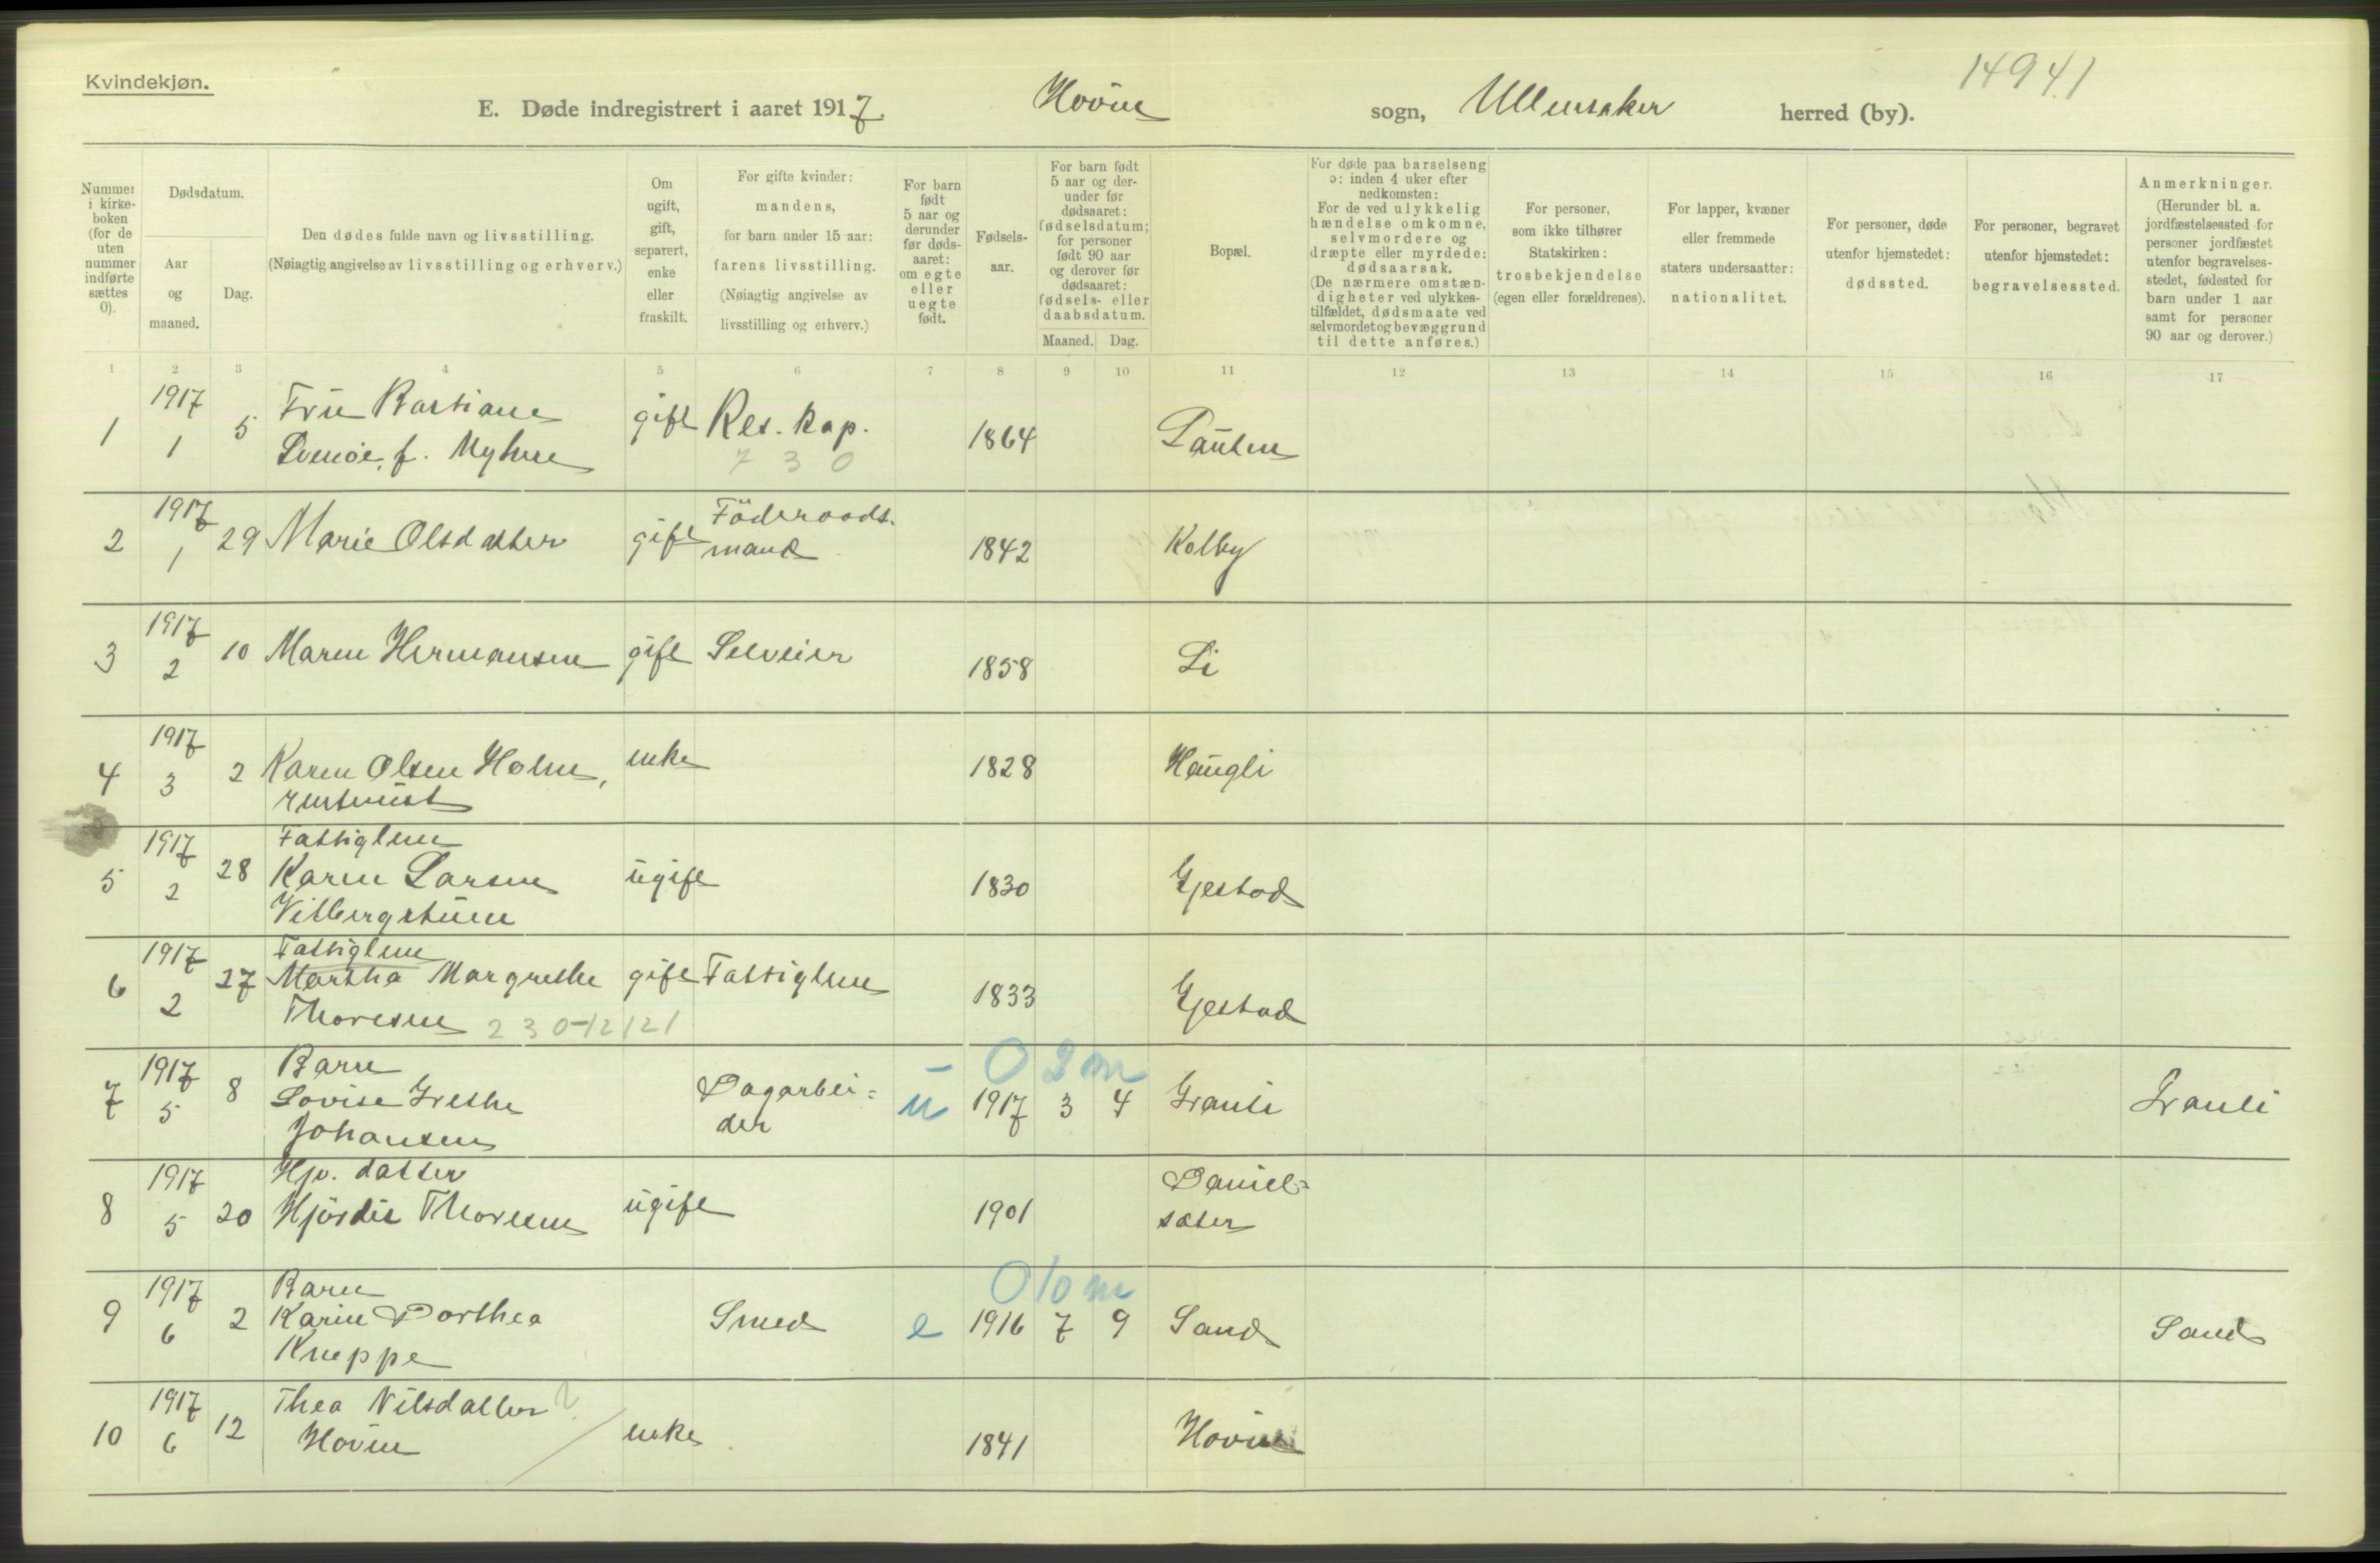 Kvindekjøn.
14941
E. Døde indregistrert i aaret 1917 Hovin sogn, Ullensaker herred (by).
Nummer i kirkeboken (for de uten nummer indførte sættes 0).
Dødsdatum.
Aar og maaned.
Dag.
Den dødes fulde navn og livsstilling.
(Nøiagtig angivelse av livsstilling og erhverv.)
Om ugift, gift, separert, enke eller fraskilt.
For gifte kvinder: mandens, for barn under 15 aar: farens livsstilling.
(Nøiagtig angivelse av livsstilling og erhverv.)
For barn født 5 aar og derunder før dødsaaret: om egte eller uegte født.
Fødselsaar.
For barn født 5 aar og derunder før dødsaaret: fødselsdatum; for personer født 90 aar og derover før dødsaaret: fødsels- eller daabsdatum.
Maaned. Dag.
Bopæl.
For døde paa barselseng ɔ: inden 4 uker efter nedkomsten:
For de ved ulykkelig hændelse omkomne, selvmordere og dræpte eller myrdede: dødsaarsak.
(De nærmere omstændigheter ved ulykkestilfældet, dødsmaate ved selvmordet og bevæggrund til dette anføres.)
For personer, som ikke tilhører Statskirken: trosbekjendelse (egen eller forældrenes).
For lapper, kvæner eller fremmede staters undersaatter: nationalitet.
For personer, døde utenfor hjemstedet: dødssted.
For personer, begravet utenfor hjemstedet: begravelsessted.
Anmerkninger.
(Herunder bl. a. jordfæstelsessted for personer jordfæstet utenfor begravelsesstedet, fødested for barn under 1 aar samt for personer 90 aar og derover.)
1 2 3 4 5 6 7 8 9 10 11 12 13 14 15 16 17
1 1917 1 5 Fru Bastiane
Svenöe, f. Myhre gift Res. kap. 1864 Pauten
7 3 0
2 1917 1 29 Marie Olsdatter gift Föderaads-
mand 1842 Kolby
3 1917 2 10 Maren Hermansen gift Selveier 1858 Li
4 1917 3 2 Karen Olsen Holm,
rentenist enke 1828 Haugli
5 1917 2 28 Fattiglem
Karen Larsen
Vilbergstuen ugift 1830 Gjestad
6 1917 2 27 Fattiglem
Martha Margrethe
Thoresen gift Fattiglem 1833 Gjestad
2 3 0-12121
0 2 m
7 1917 5 8 Barn
Lovise Grethe
Johansen Dagarbei=
der u 1917 3 4 Granli Granli
8 1917 5 20 Hjv. datter
Hjördis Thoresen ugift 1901 Daniel=
sæter
0 10 m
9 1917 6 2 Barn
Karin Dorthea
Knappe Smed e 1916 7 9 Sand Sand
10 1917 6 12 Thea Nilsdatter
Hovin enke 1841 Hovin